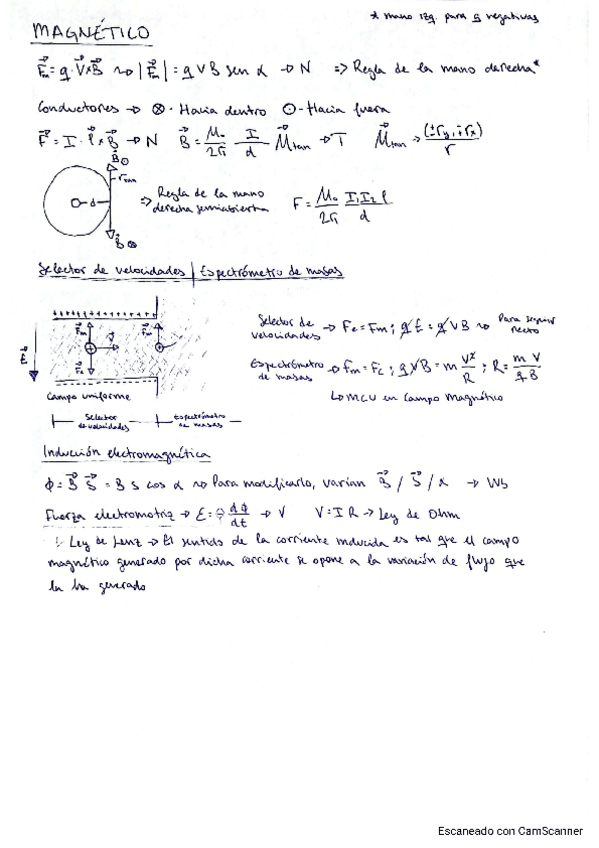 * mano izq. para q negativas
MAGNÉTICO
F⃗m = q · V⃗ x B⃗ ~> |F⃗m| = q V B sen α -> N => Regla de la mano derecha*
Conductores -> ⊗ · Hacia dentro ⊙ - Hacia fuera
F⃗ = I · l⃗ x B⃗ -> N B⃗ = μ₀/2π I/d μ⃗tan -> T μ⃗tan -> (±ry, ∓rx)/r
B⃗ ⊙
rtan
d
B⃗ ⊗
=> Regla de la mano derecha semiabierta
F = μ₀/2π I₁I₂ l/d
Selector de velocidades | Espectrómetro de masas
+ + + + + + + + + +
F⃗m
V⃗
F⃗m
F⃗e
- - - - - - - -
Campo uniforme
Selector de velocidades
Espectrómetro de masas
Selector de velocidades -> Fe = Fm ; q E = q V B ~> Para seguir recto
Espectrómetro de masas -> Fm = Fc ; q V B = m V²/R ; R = m V/q B
↳ MCU en campo magnético
Inducción electromagnética
ϕ = B⃗ S⃗ = B S cos α ~> Para modificarlo, varían B⃗ / S⃗ / α -> Wb
Fuerza electromotriz -> ε = - dϕ/dt -> V V = I R -> Ley de Ohm
Ley de Lenz -> El sentido de la corriente inducida es tal que el campo
magnético generado por dicha corriente se opone a la variación de flujo que
la ha generado
Escaneado con CamScanner